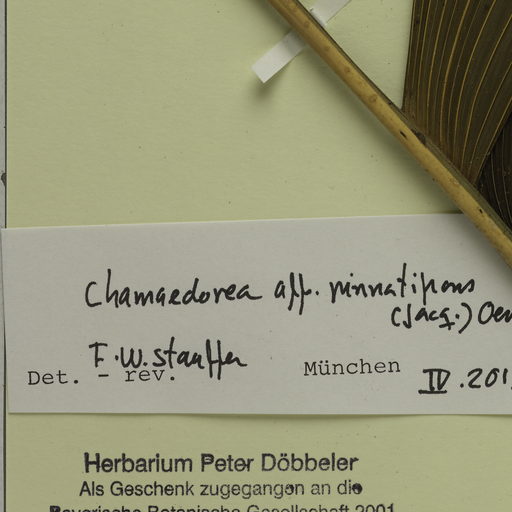 Chamaedorea aff. pinnatifrons
(Jacq.) Oer
F.W. Stauffer
Det. - rev. München IV.201
Herbarium Peter Döbbeler
Als Geschenk zugegangen an die
Bayerische Botanische Gesellschaft 2001